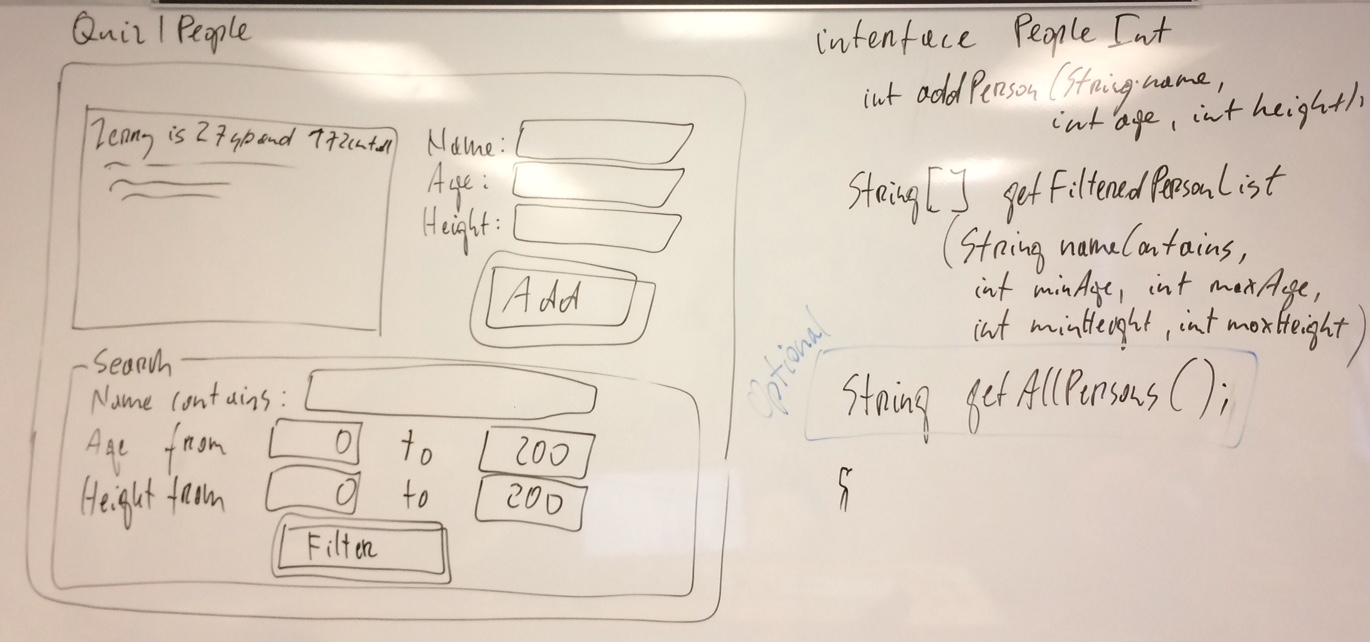 Quiz 1 People
is 27 and
Name:
Age:
Height:
Add
Search
Name contains:
Age from 0 to 200
Height from 0 to 200
Filter
interface People Int
int addPerson (String name,
int age, int height);
String[] getFilteredPersonList
(String nameContains,
int minAge, int maxAge,
int minHeught, int maxHeight)
Optional
String getAllPersons();